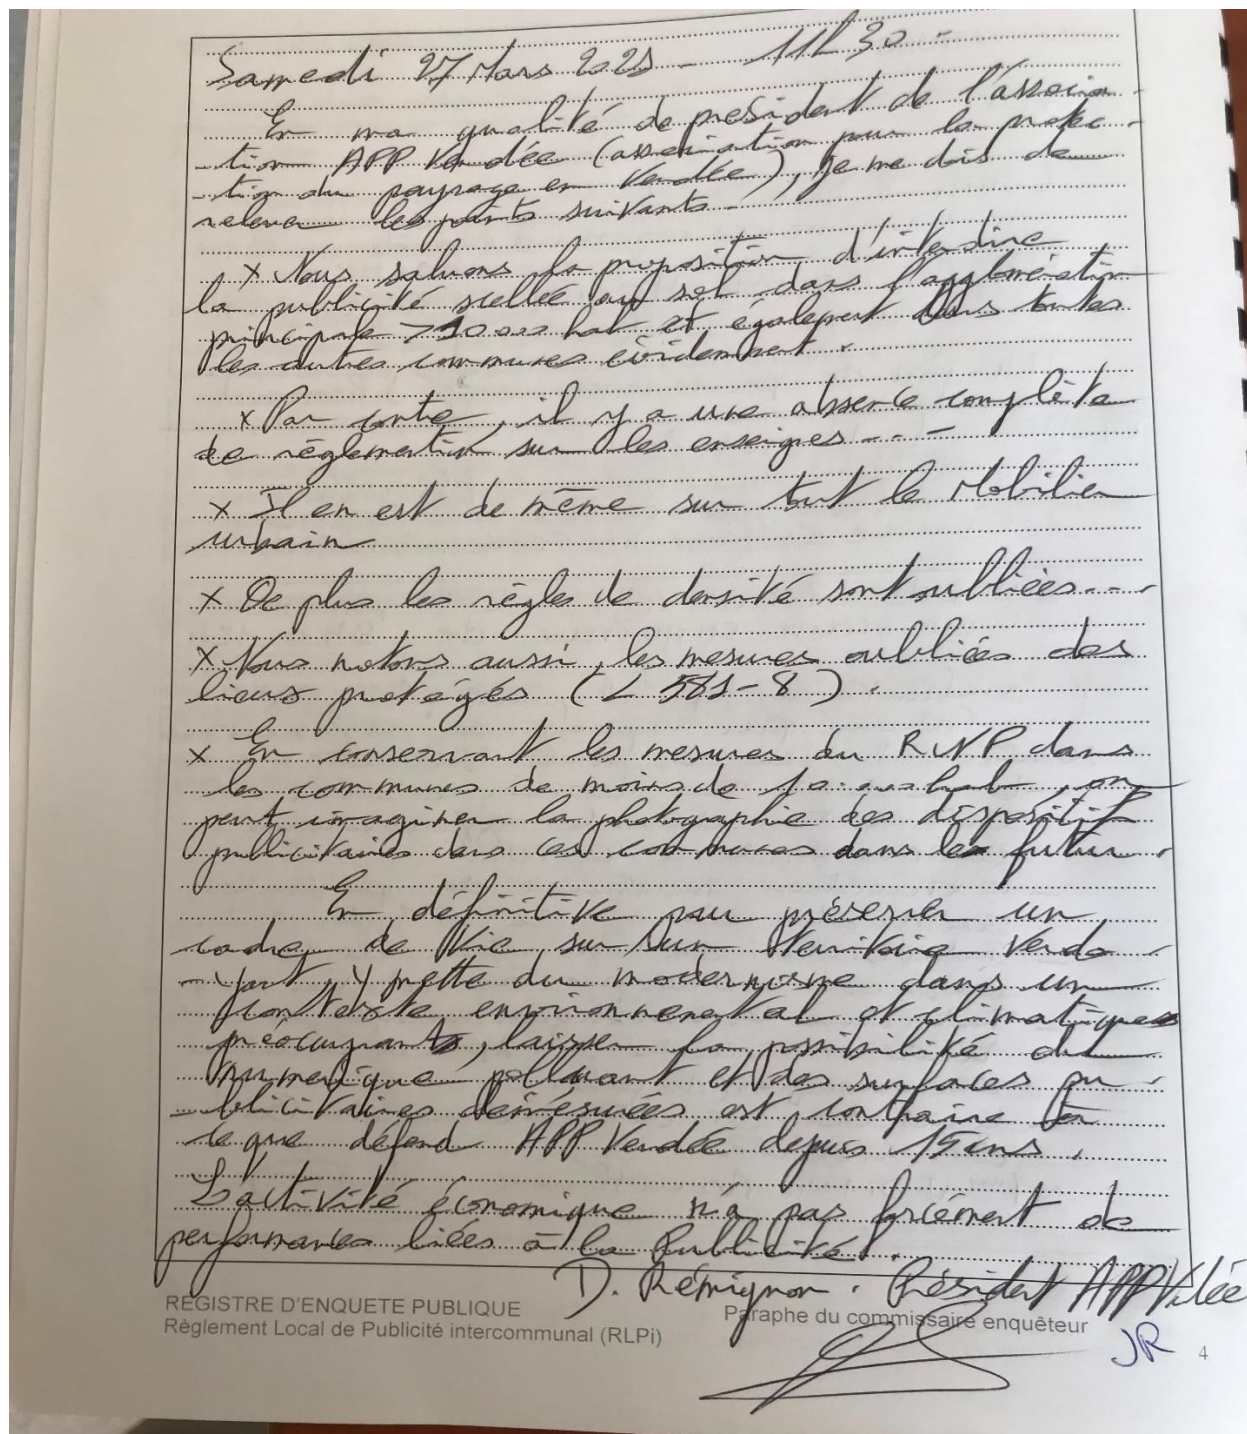 Samedi 27 Mars 2021 - 11h30 -
En ma qualité de président de l'associa
-tion APP Vendée (association pour la protec-
-tion du paysage en Vendée), je me dois de
relever les points suivants -
x Nous saluons la proposition d'interdire
la publicité scellée au sol dans l'agglomération
principale > 10 000 hab et également dans toutes
les autres communes évidemment.
x Par contre, il y a une absence complète
de réglementation sur les enseignes - - -
x Il en est de même sur tout le Mobilier
urbain
x De plus les règles de densité sont oubliées - - -
x Nous notons aussi, les mesures oubliées des
lieux protégés (L 581-8).
x En conservant les mesures du RNP dans
les communes de moins de 10.000 hab, on
peut imaginer la photographie des dispositifs
publicitaires dans ces communes dans le futur.
En définitive pour préserver un
cadre de Vie sur un territoire Vendé
-yant, y mettre du modernisme dans un
contexte environnemental et climatique
préoccupant, laisser la possibilité du
numérique polluant et des surfaces pu-
-blicitaires démésurées est contraire à
ce que défend APP Vendée depuis 15 ans.
L'activité économique n'a pas forcément de
performances liées à la Publicité.
D. Rémignon. Président APP Vdée
REGISTRE D'ENQUETE PUBLIQUE
Paraphe du commissaire enquêteur
Règlement Local de Publicité intercommunal (RLPi)
JR
4